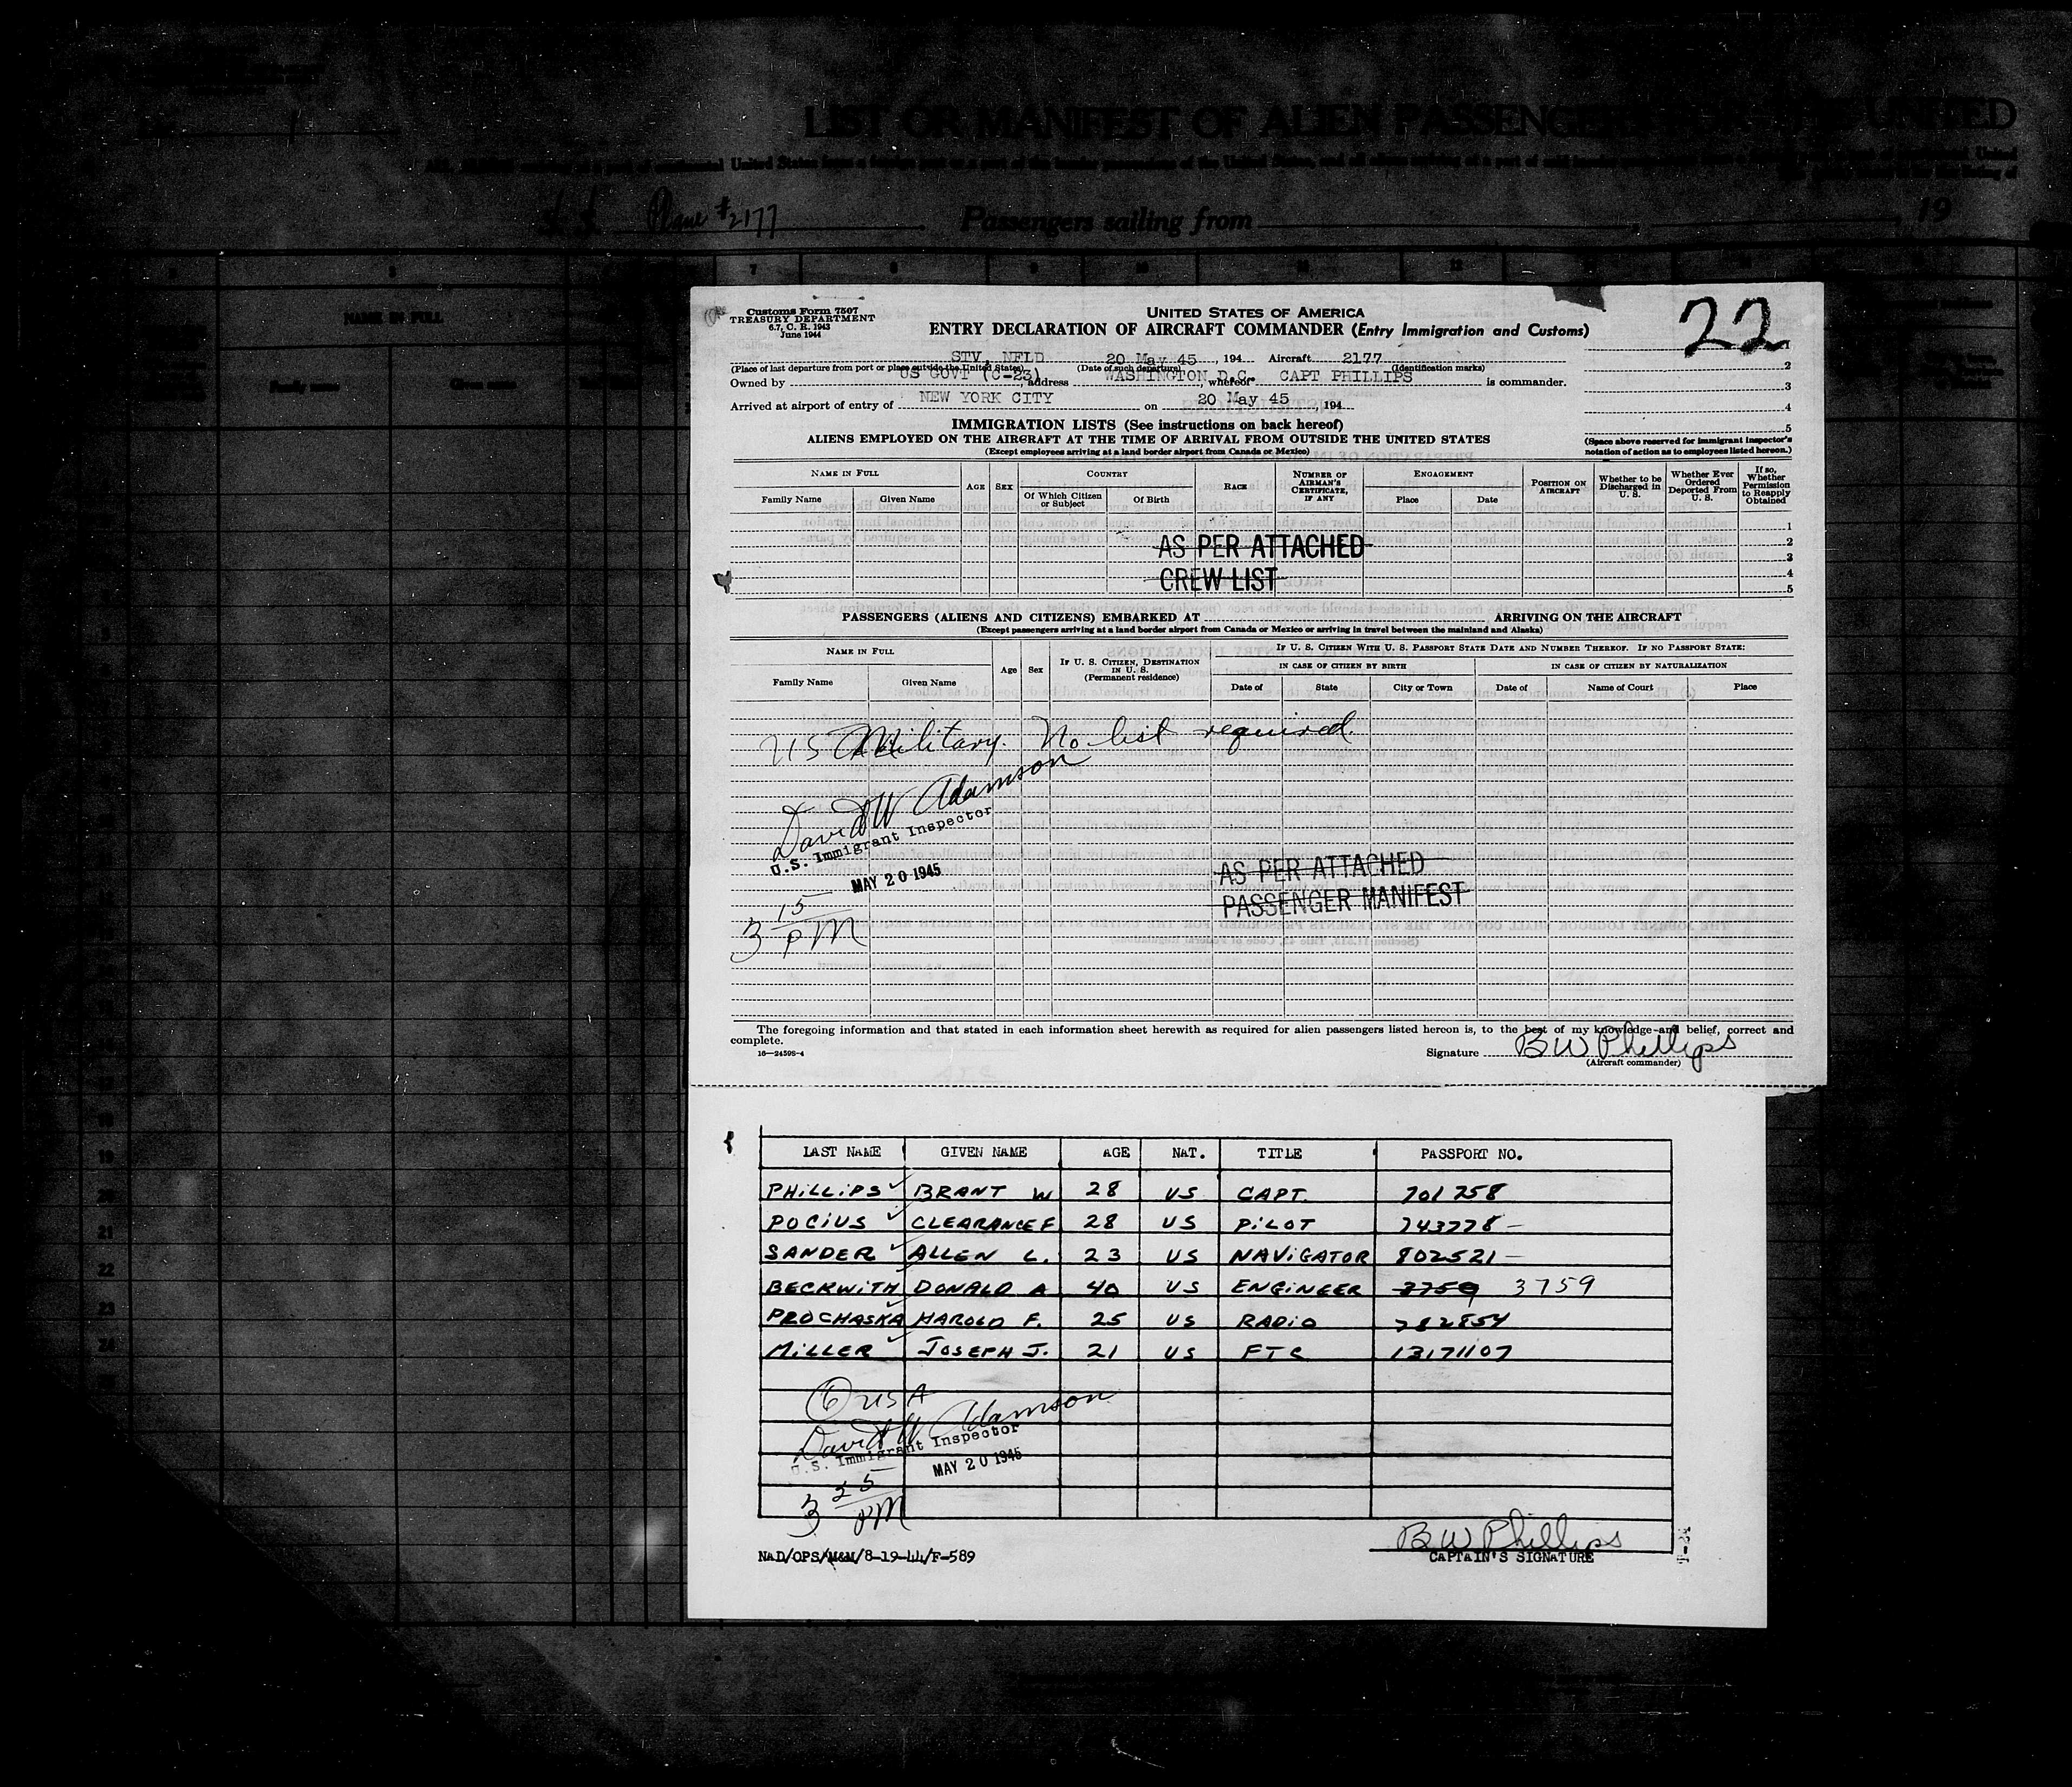 LIST OR MANIFEST OF ALIEN PASSENGERS FOR THE UNITED
S. S. Plane #2177 Passengers sailing from , 19
Customs Form 7507
TREASURY DEPARTMENT
6.7, C. R. 1943
June 1944
UNITED STATES OF AMERICA
ENTRY DECLARATION OF AIRCRAFT COMMANDER (Entry Immigration and Customs)
22
STV, NFLD 20 May 45, 194 Aircraft 2177
(Place of last departure from port or place outside the United States) (Date of such departure) (Identification marks)
Owned by US GOVT (C-23), address WASHINGTON D.C., whereof CAPT PHILLIPS is commander.
Arrived at airport of entry of NEW YORK CITY on 20 May 45, 194
1
2
3
4
5
(Space above reserved for immigrant inspector's
notation of action as to employees listed hereon.)
IMMIGRATION LISTS (See instructions on back hereof)
ALIENS EMPLOYED ON THE AIRCRAFT AT THE TIME OF ARRIVAL FROM OUTSIDE THE UNITED STATES
(Except employees arriving at a land border airport from Canada or Mexico)
NAME IN FULL AGE SEX COUNTRY RACE NUMBER OF AIRMAN'S CERTIFICATE, IF ANY ENGAGEMENT POSITION ON AIRCRAFT Whether to be Discharged in U. S. Whether Ever Ordered Deported From U. S. If so, Whether Permission to Reapply Obtained
Family Name Given Name Of Which Citizen or Subject Of Birth Place Date
1
2
3
4
5
AS PER ATTACHED
CREW LIST
PASSENGERS (ALIENS AND CITIZENS) EMBARKED AT ARRIVING ON THE AIRCRAFT
(Except passengers arriving at a land border airport from Canada or Mexico or arriving in travel between the mainland and Alaska)
NAME IN FULL Age Sex IF U. S. CITIZEN, DESTINATION IN U. S. (Permanent residence) IF U. S. CITIZEN WITH U. S. PASSPORT STATE DATE AND NUMBER THEREOF. IF NO PASSPORT STATE:
IN CASE OF CITIZEN BY BIRTH IN CASE OF CITIZEN BY NATURALIZATION
Family Name Given Name Date of State City or Town Date of Name of Court Place
US Military. No list required.
David W Adamson
U.S. Immigrant Inspector
MAY 20 1945
3 15 PM
AS PER ATTACHED
PASSENGER MANIFEST
The foregoing information and that stated in each information sheet herewith as required for alien passengers listed hereon is, to the best of my knowledge and belief, correct and
complete.
16—24598-4
Signature B W Phillips
(Aircraft commander)
LAST NAME GIVEN NAME AGE NAT. TITLE PASSPORT NO.
PHILLIPS BRANT W 28 US CAPT. 701758
POCIUS CLEARANCE F 28 US PILOT 743778
SANDER ALLEN L. 23 US NAVIGATOR 802521
BECKWITH DONALD A 40 US ENGINEER 3759 3759
PROCHASKA HAROLD F. 25 US RADIO 782854
MILLER JOSEPH J. 21 US FTC 13171107
6 USA
David W Adamson
U.S. Immigrant Inspector
MAY 20 1945
3 25 PM
B W Phillips
CAPTAIN'S SIGNATURE
NAD/OPS/M&M/8-19-44/F-589